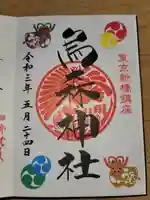 東京新橋鎮座
烏森神社
令和三年五月二十四日